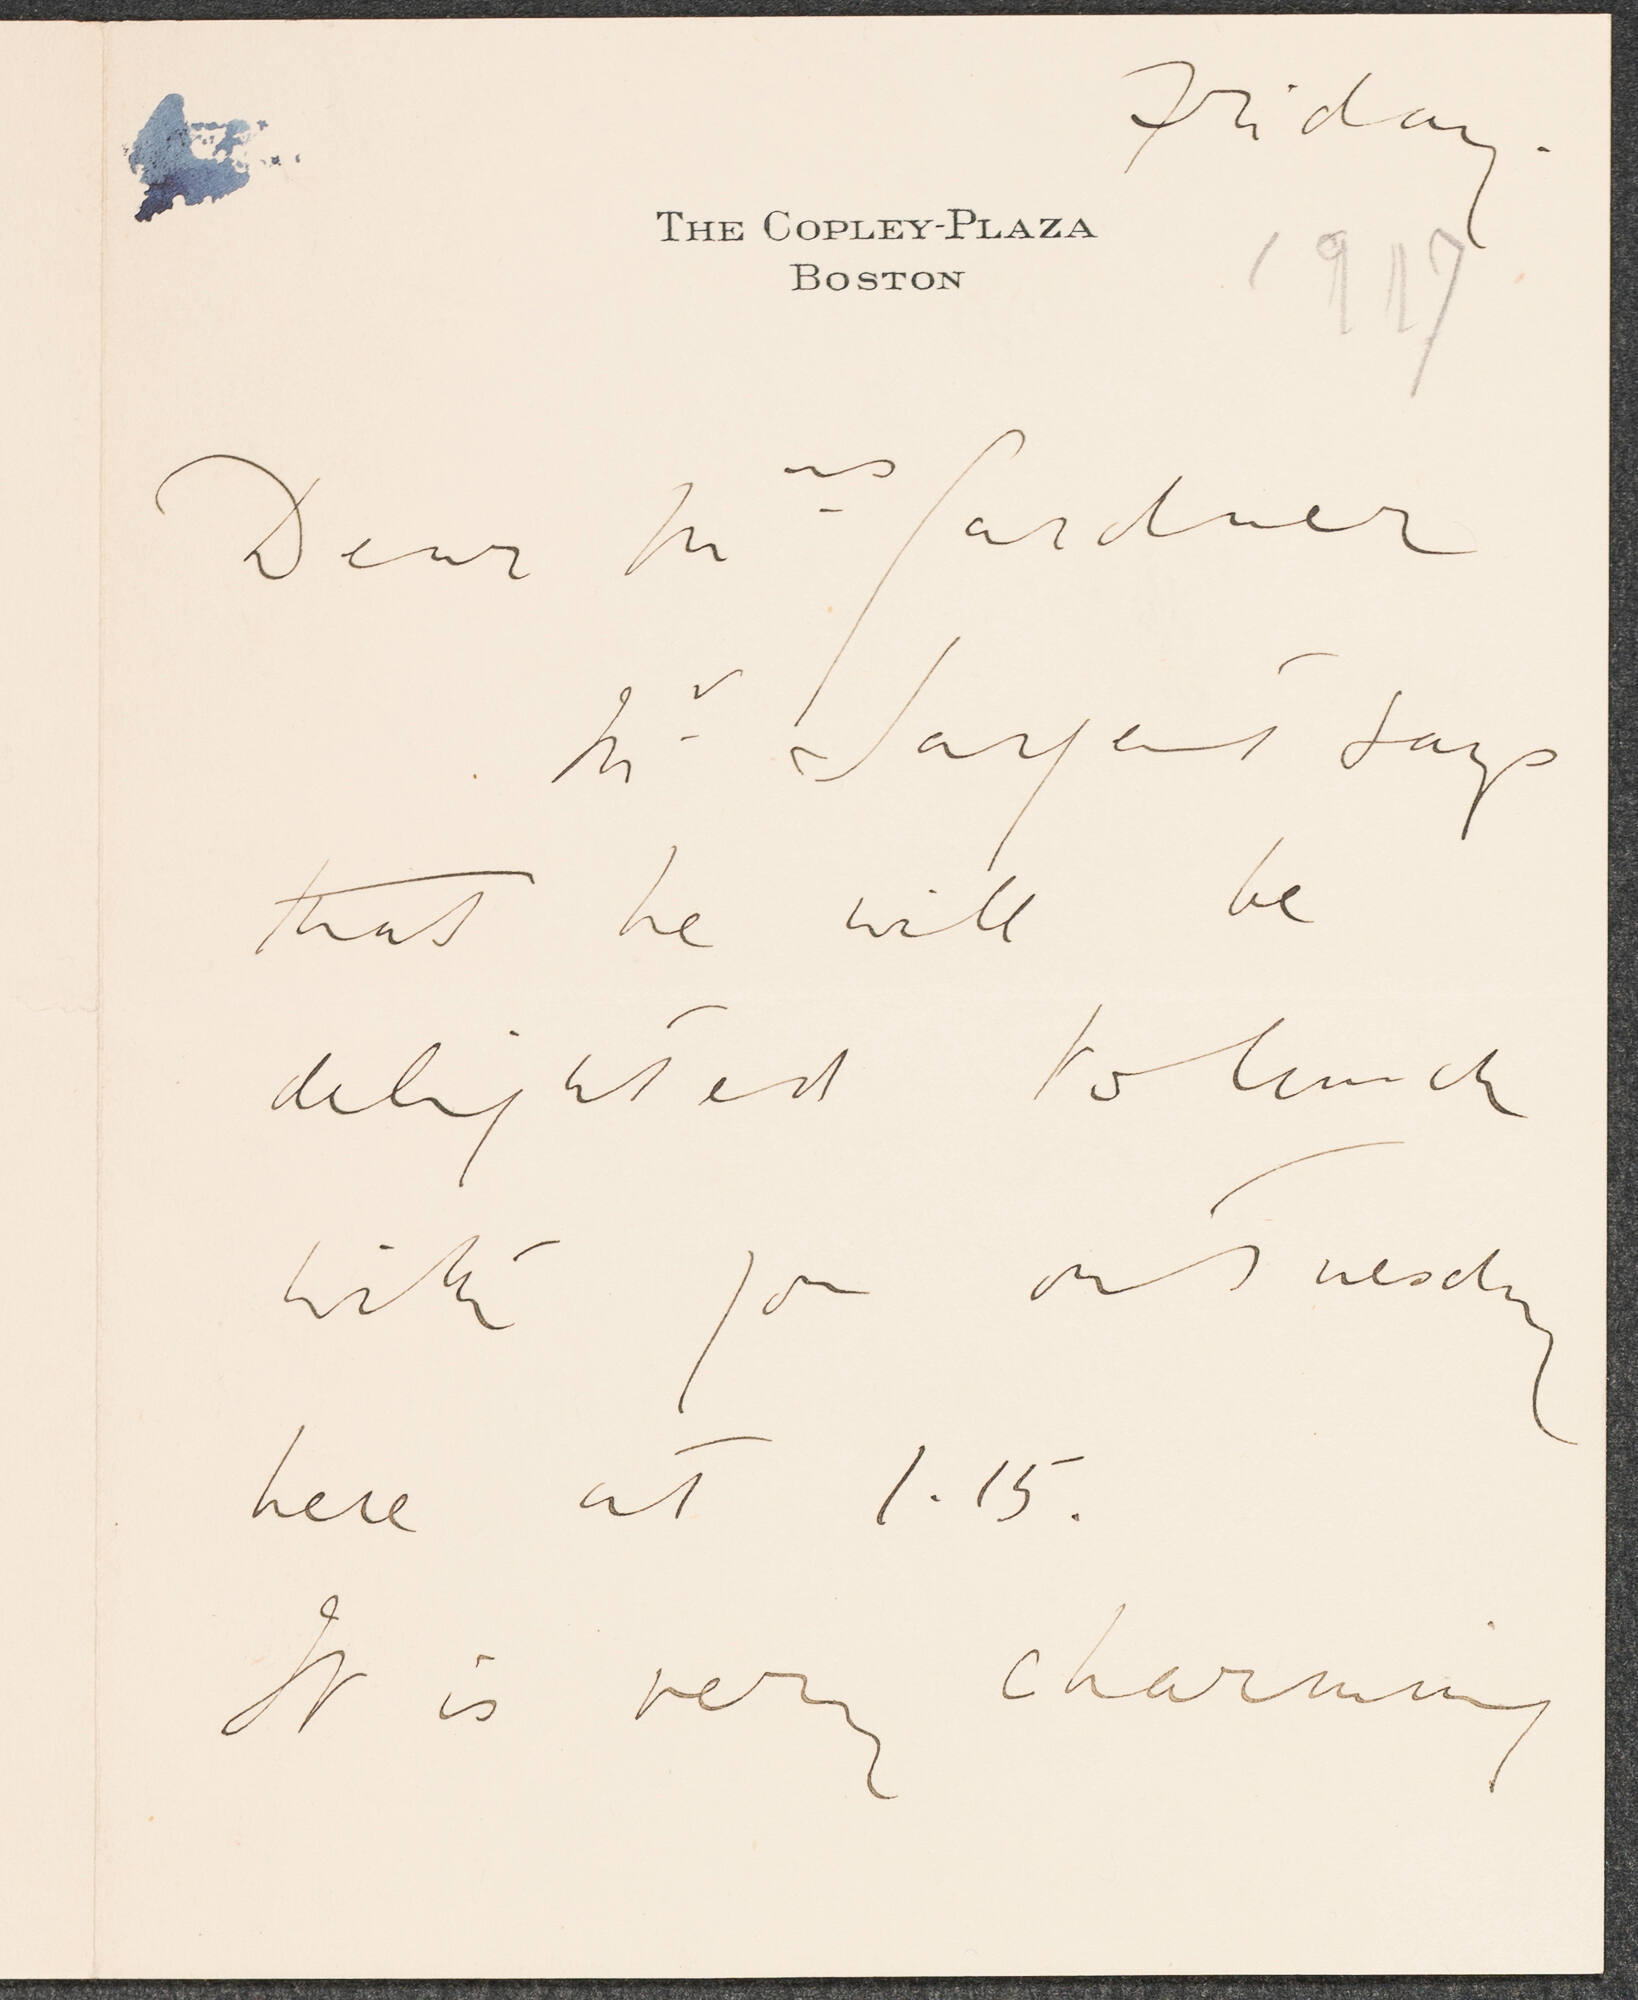 Friday.
THE COPLEY-PLAZA
BOSTON
1917
Dear Mrs Gardner
Mr Sargent says
that he will be
delighted to lunch
with you on Tuesday
here at 1.15.
It is very charming